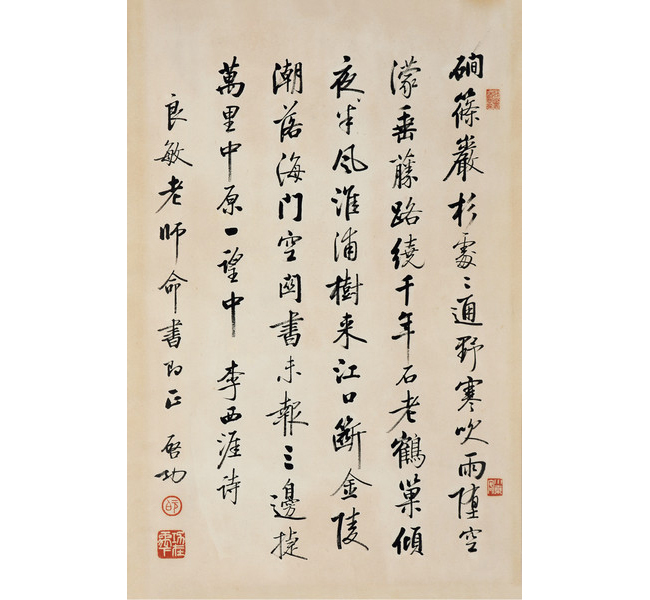 磵篠巖杉處〻通野寒吹雨墮空
濛垂藤路繞千年石老鶴巢傾
夜半风淮浦樹来江口斷金陵
潮落海门空関書未報三邊捷
萬里中原一望中 李西涯诗
良敏老师命書即正 啓功